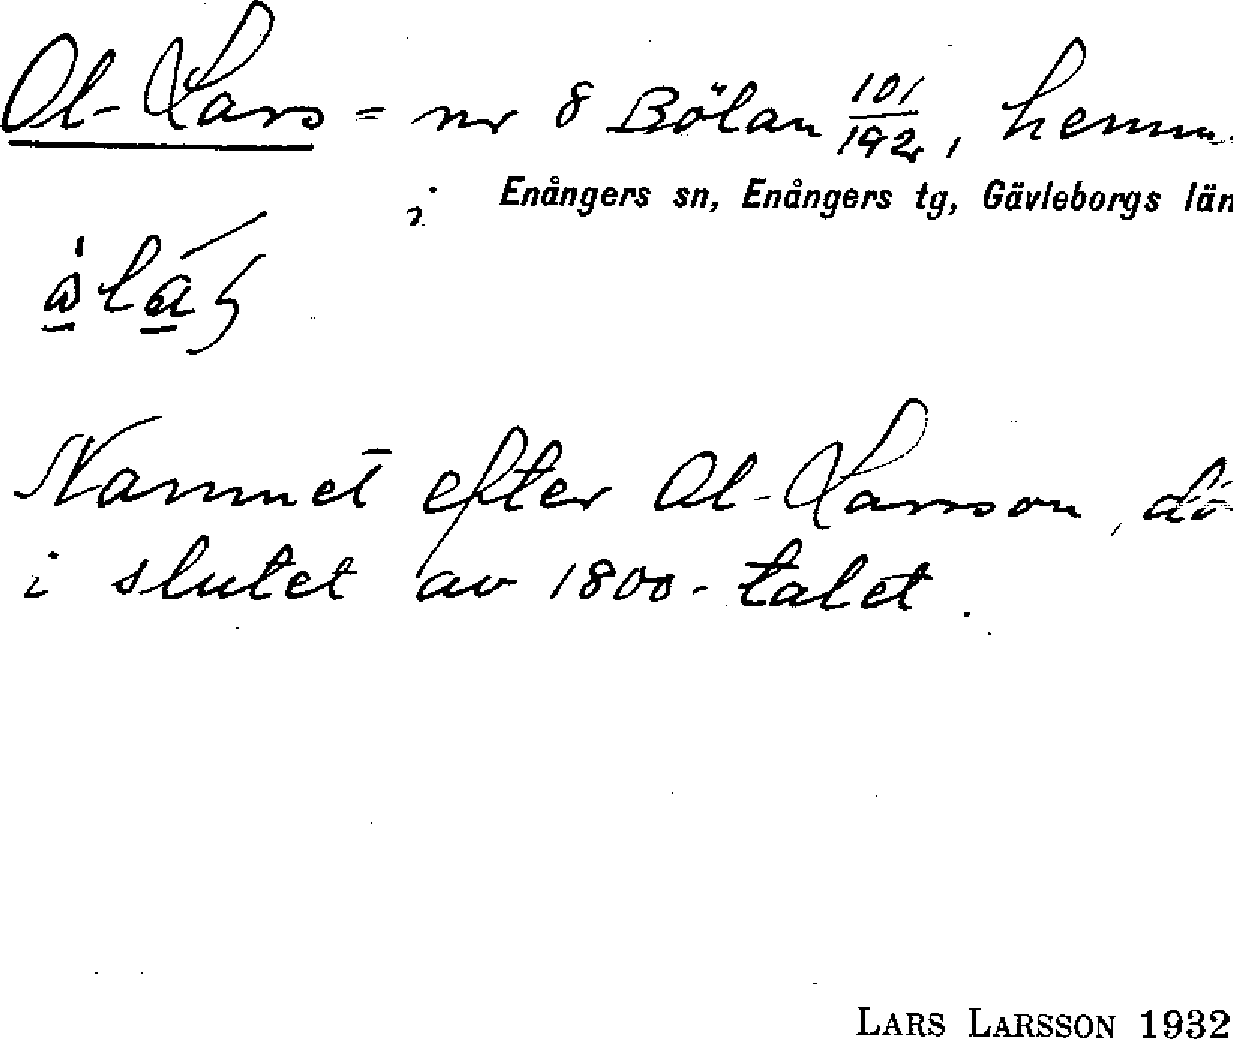 Ol-Lars = nr 8 Bölan 101/192, hemm.
i Enångers sn, Enångers tg, Gävleborgs län
Namnet efter Ol-Larsson, dö
i slutet av 1800-talet.
LARS LARSSON 1932